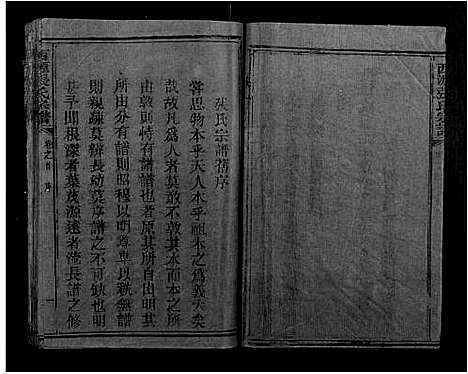 西源張氏宗譜
張氏宗譜舊序
嘗思物本乎天人本乎祖本之爲義大矣
哉故凡爲人者莫敢不敦其本而本之所
由敦則恃有譜譜也者原其所自由明其
所由分有譜則昭穆以明尊卑以秩無譜
則親疎莫辨長幼莫序譜之不可缺也明
甚予聞根深者葉茂源遠者流長譜之修
西源張氏宗譜
卷之首 序